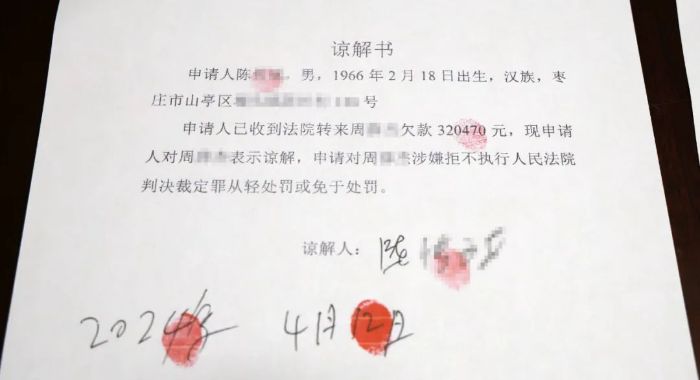 谅解书
申请人陈，男，1966年2月18日出生，汉族，枣
庄市山亭区号
申请人已收到法院转来周欠款320470元，现申请
人对周表示谅解，申请对周涉嫌拒不执行人民法院
判决裁定罪从轻处罚或免于处罚。
谅解人：陈
2024年 4月12日